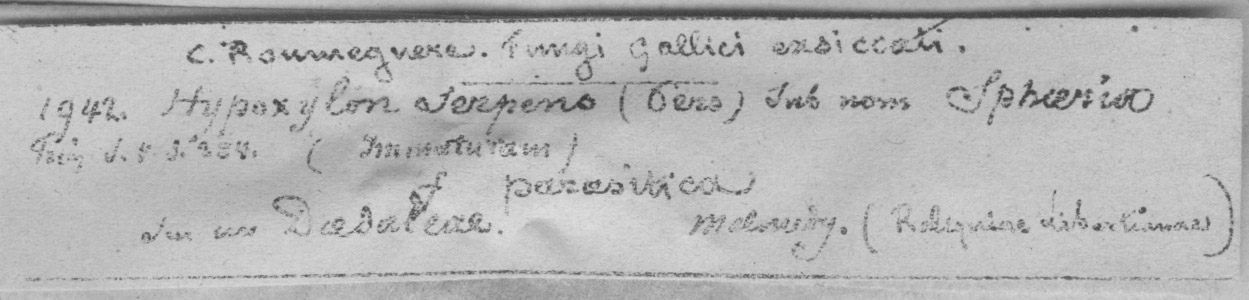 C. Roumeguere. Fungi Gallici exsiccati.
1942. Hypoxylon Serpens (Pers) Sub nom Sphæria
S. 284. (Immaturam)
f parasitica
Sur un Dædaleae. Malmedy. (Reliquiae Libertianae)